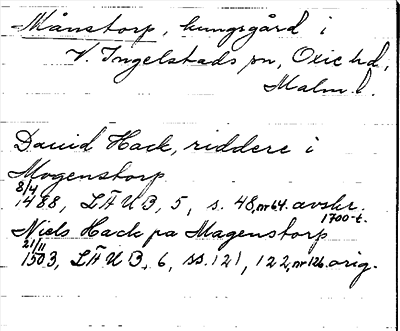 Månstorp, kungsgård i
V. Ingelstads sn, Oxie hd,
Malm. l.
David Hack, riddere i
Mogenstorp
8/4
1488, LÄUB, 5, s. 48, nr 64. avskr.
1700-t.
Niels Hack pa Magenstorp
21/11
1503, LÄUB, 6, ss. 121, 122, nr 126 orig.